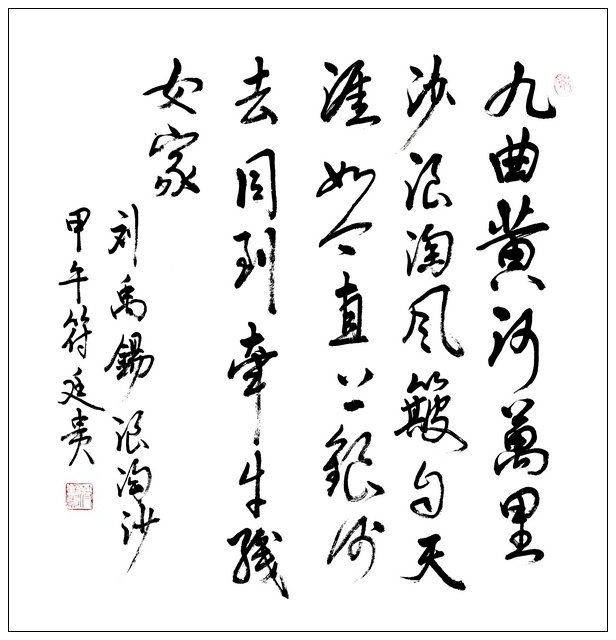 九曲黄河萬里
沙浪淘风簸自天
涯如今直上銀河
去同到牽牛織
女家
刘禹錫浪淘沙
甲午符廷贵